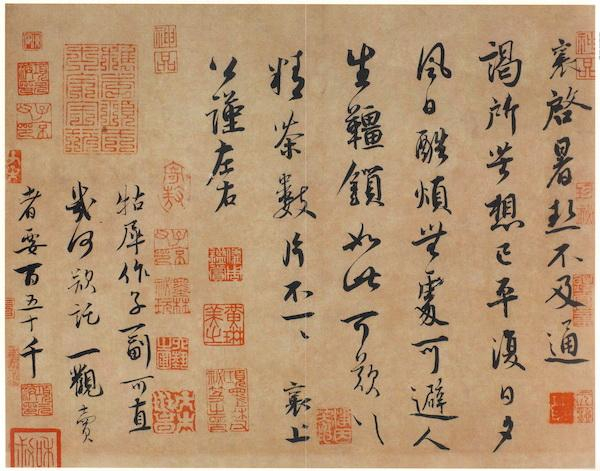 襄啓暑熱不及通
謁所苦想已平復日夕
風日酷煩無處可避人
生韁鎖如此可歎〻
精茶數片不一〻 襄上
公謹左右
牯犀作子一副可直
幾何欲託一觀賣
者要百五十千
神品